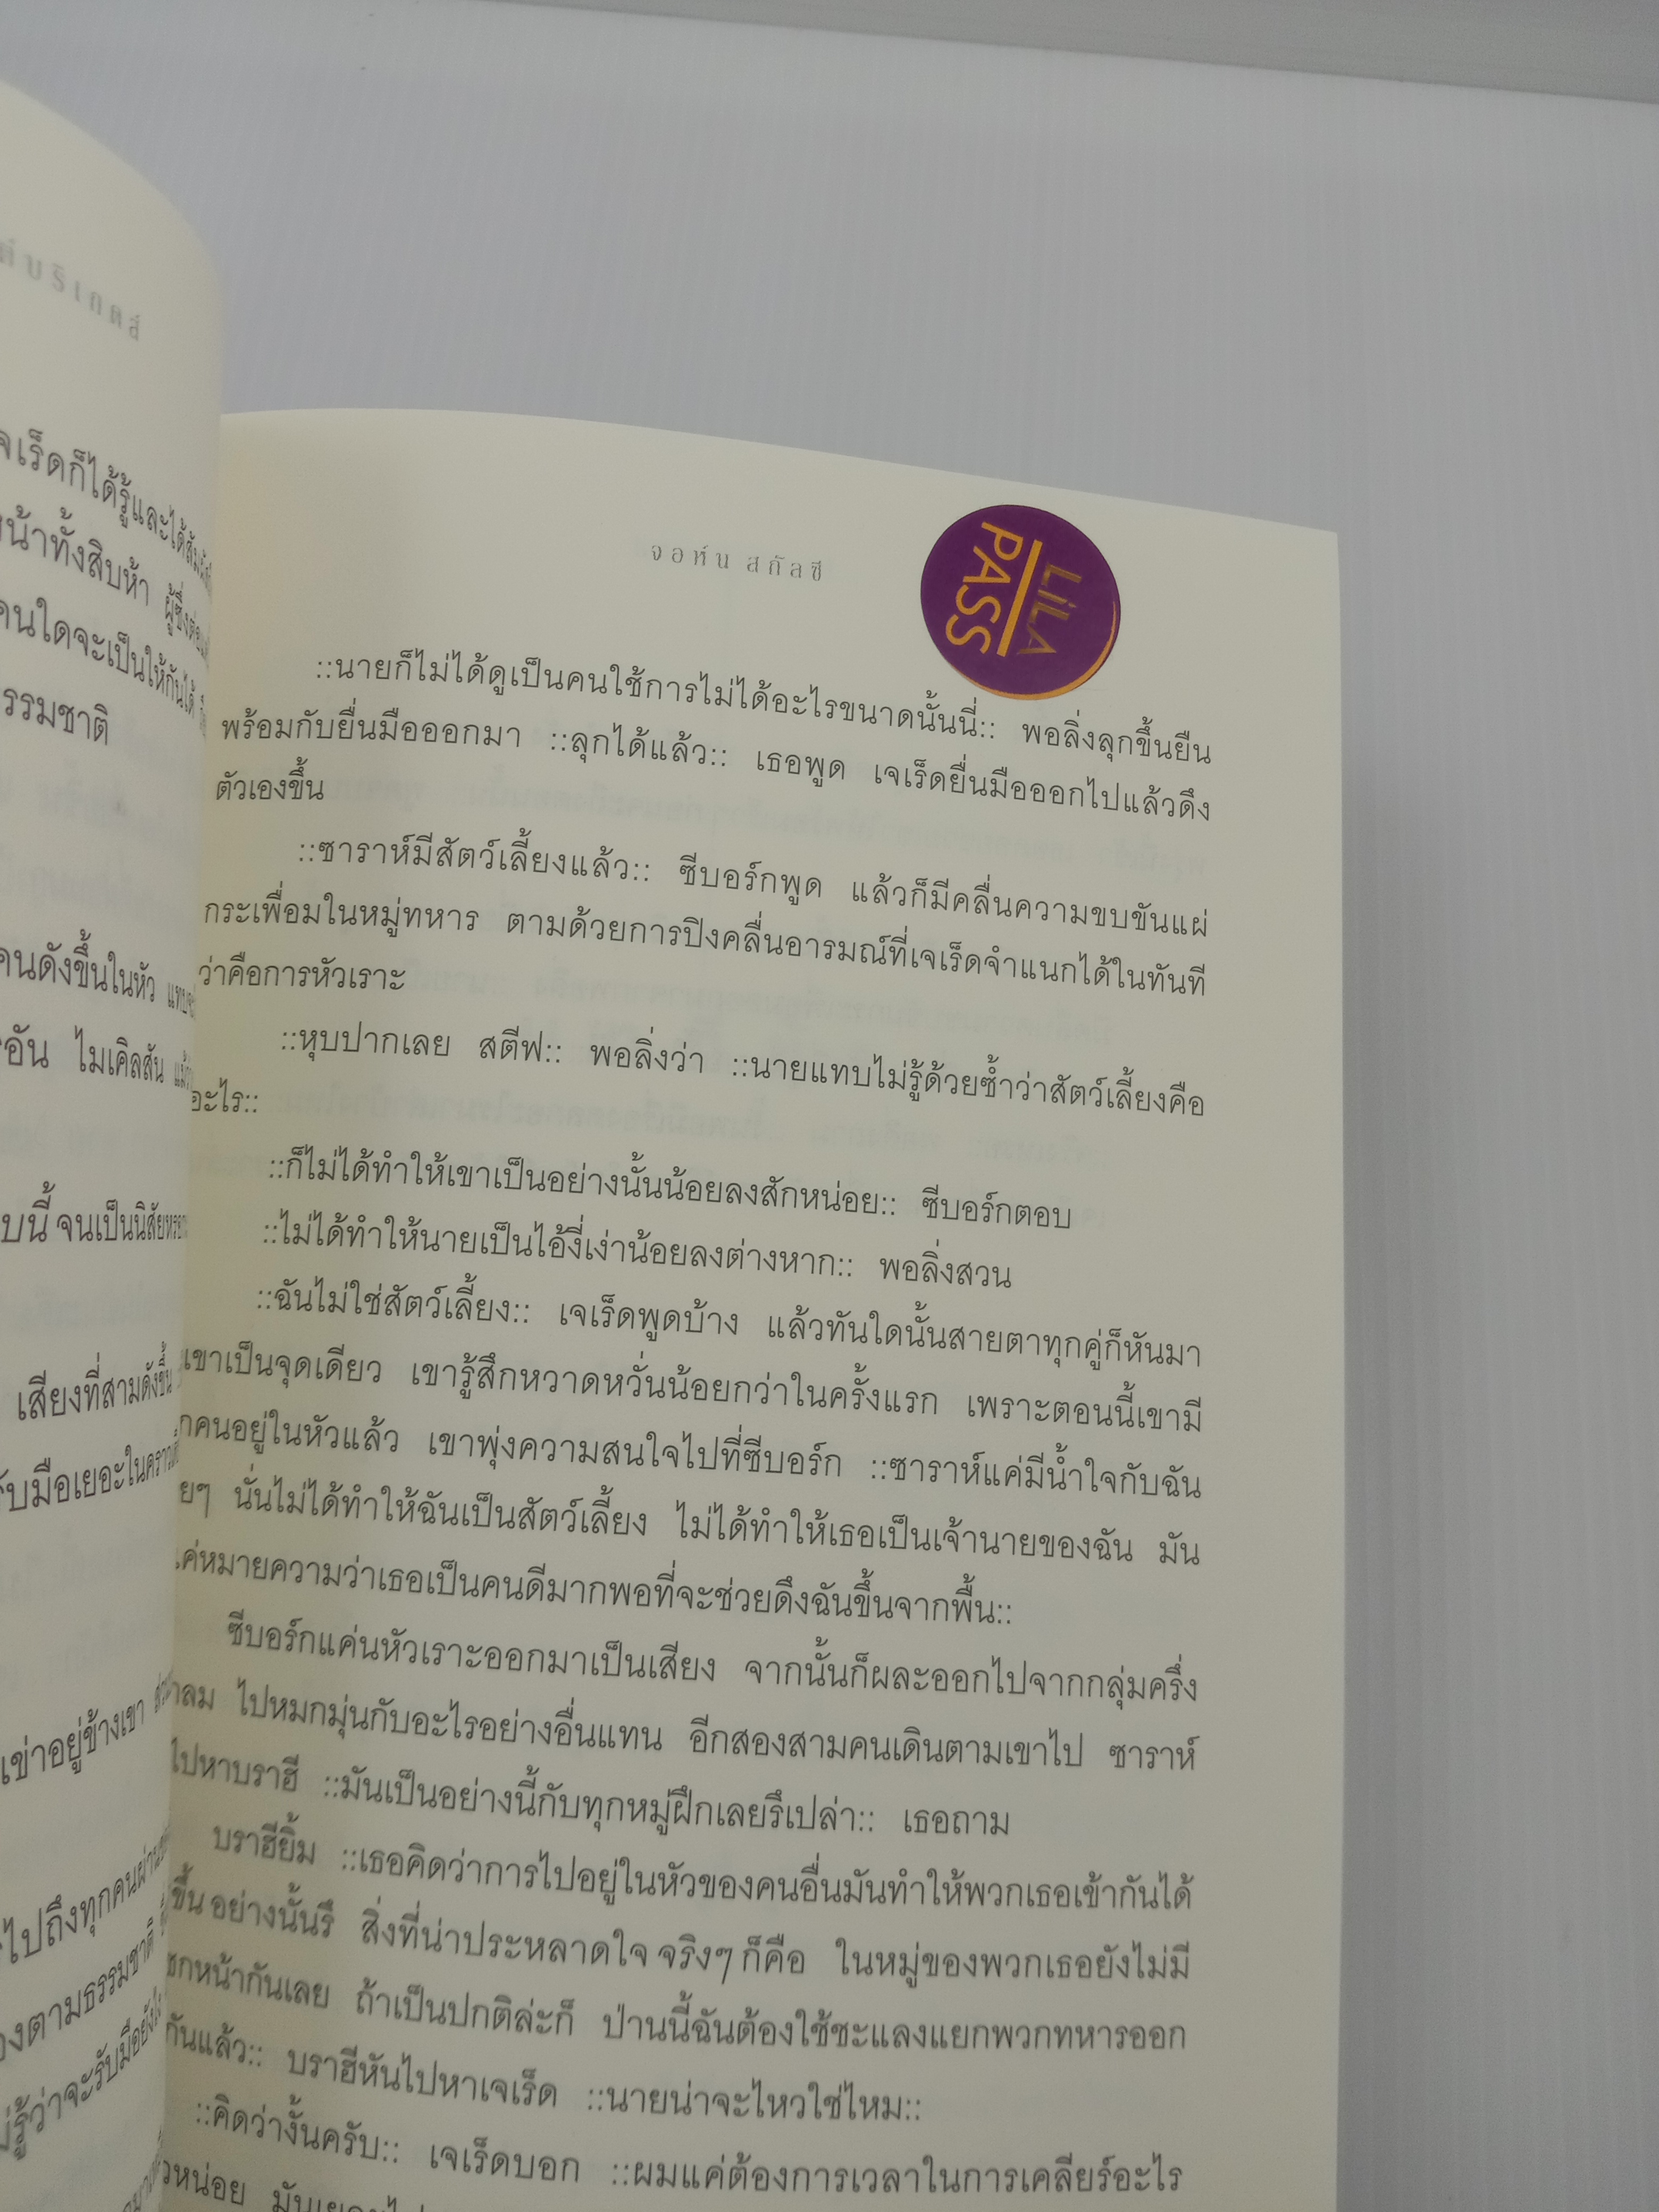 จเร็ดก็ได้รู้และได้สัมผัส
หน้าทั้งสิบห้า
คนใดจะเป็นให้กันได้
รรมชาติ
คนดังขึ้นในหัว
ไมเคิลสัน
บนี้ จนเป็นนิสัย
เสียงที่สามดังขึ้น
รับมือเยอะในคราวเดียว
เข่าอยู่ข้างเขา
ไปถึงทุกคนผ่าน
องตามธรรมชาติ
รู้ว่าจะรับมือยังไง
จอห์น สกัลซี
LiLA
PASS
::นายก็ไม่ได้ดูเป็นคนใช้การไม่ได้อะไรขนาดนั้นนี่:: พอลิ่งลุกขึ้นยืน
พร้อมกับยื่นมือออกมา ::ลุกได้แล้ว:: เธอพูด เจเร็ดยื่นมือออกไปแล้วดึง
ตัวเองขึ้น
::ซาราห์มีสัตว์เลี้ยงแล้ว:: ซีบอร์กพูด แล้วก็มีคลื่นความขบขันแผ่
กระเพื่อมในหมู่ทหาร ตามด้วยการปิงคลื่นอารมณ์ที่เจเร็ดจำแนกได้ในทันที
ว่าคือการหัวเราะ
::หุบปากเลย สตีฟ:: พอลิ่งว่า ::นายแทบไม่รู้ด้วยซ้ำว่าสัตว์เลี้ยงคือ
อะไร::
::ก็ไม่ได้ทำให้เขาเป็นอย่างนั้นน้อยลงสักหน่อย:: ซีบอร์กตอบ
::ไม่ได้ทำให้นายเป็นไอ้งี่เง่าน้อยลงต่างหาก:: พอลิ่งสวน
::ฉันไม่ใช่สัตว์เลี้ยง:: เจเร็ดพูดบ้าง แล้วทันใดนั้นสายตาทุกคู่ก็หันมา
เขาเป็นจุดเดียว เขารู้สึกหวาดหวั่นน้อยกว่าในครั้งแรก เพราะตอนนี้เขามี
กคนอยู่ในหัวแล้ว เขาพุ่งความสนใจไปที่ซีบอร์ก ::ซาราห์แค่มีน้ำใจกับฉัน
ยๆ นั่นไม่ได้ทำให้ฉันเป็นสัตว์เลี้ยง ไม่ได้ทำให้เธอเป็นเจ้านายของฉัน มัน
แค่หมายความว่าเธอเป็นคนดีมากพอที่จะช่วยดึงฉันขึ้นจากพื้น::
ซีบอร์กแค่นหัวเราะออกมาเป็นเสียง จากนั้นก็ผละออกไปจากกลุ่มครึ่ง
าลม ไปหมกมุ่นกับอะไรอย่างอื่นแทน อีกสองสามคนเดินตามเขาไป ซาราห์
ไปหาบราฮี ::มันเป็นอย่างนี้กับทุกหมู่ฝึกเลยรึเปล่า:: เธอถาม
บราฮียิ้ม ::เธอคิดว่าการไปอยู่ในหัวของคนอื่นมันทำให้พวกเธอเข้ากันได้
ขึ้น อย่างนั้นรึ สิ่งที่น่าประหลาดใจ จริงๆ ก็คือ ในหมู่ของพวกเธอยังไม่มี
ชกหน้ากันเลย ถ้าเป็นปกติล่ะก็ ป่านนี้ฉันต้องใช้ชะแลงแยกพวกทหารออก
กันแล้ว:: บราฮีหันไปหาเจเร็ด ::นายน่าจะไหวใช่ไหม::
::คิดว่างั้นครับ:: เจเร็ดบอก ::ผมแค่ต้องการเวลาในการเคลียร์อะไร
วหน่อย